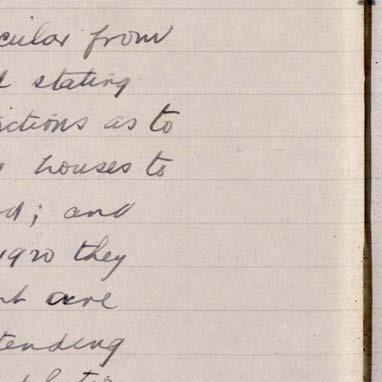 cular from
stating
ictions as to
houses to
d; and
1920 they
are
tending